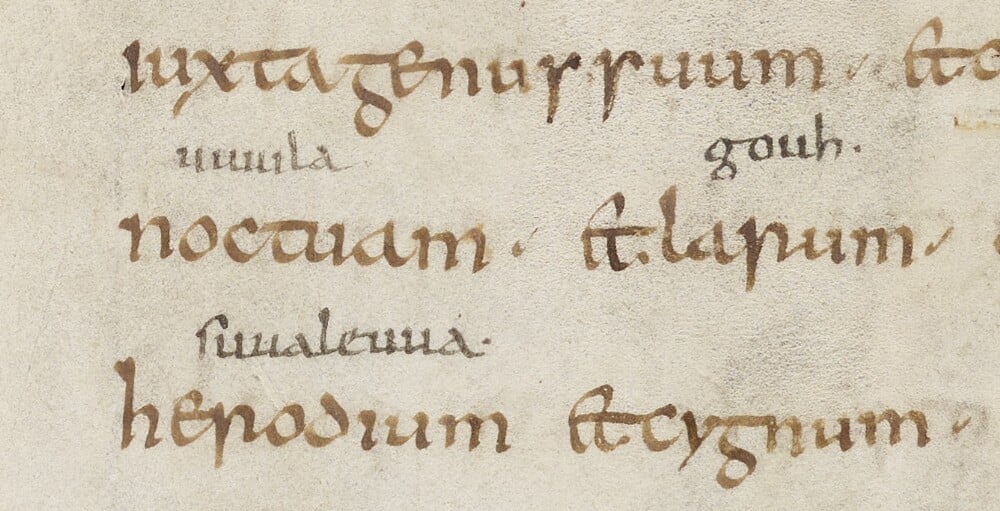 iuxta genus suum . et
uuuila gouh.
noctuam . et larum .
suualeuua.
herodium et cygnum .